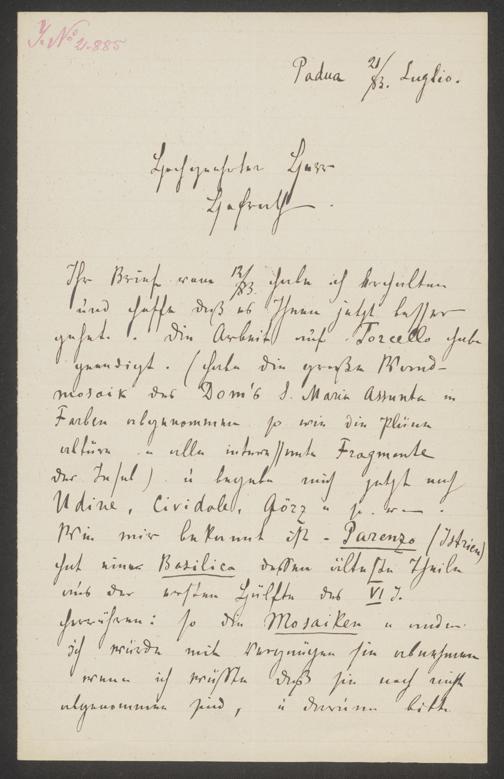 J. No 2.885
Padua 21/83. Luglio.
Hochgeehrter Herr
Hofrath.
Ihr Brief vom 12/83. habe ich erhalten
und hoffe daß es Ihnen jetzt besser
gehet. Die Arbeit auf Torcello habe
geendigt. (habe die große Wand-
mosaik des Dom's S. Maria Assunta in
Farben abgenommen so wie die Pläne
altäre u alle interessante Fragmente
der Insel) u begebe mich jetzt nach
Udine, Cividale, Görz u s. w.
Wie mir bekannt ist - Parenzo (Istrien)
hat eine Basilica dessen älteste Theile
aus der ersten Hülfte des VI J.
herrühren: so die Mosaiken u
ich würde mit Vergnügen sie abnehmen
wenn ich wüßte daß sie noch nicht
abgenommen sind, u darum bitte